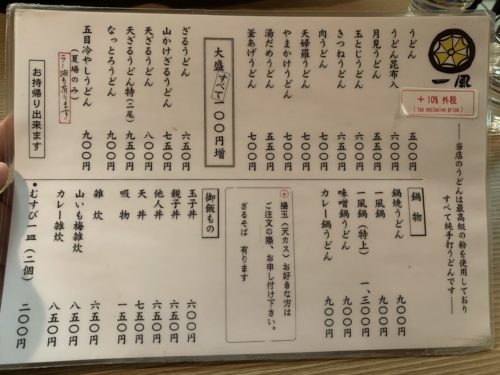 一風
+ 10% 外税
( tax exclusive price )
――当店のうどんは最高級の粉を使用しており
すべて純手打うどんです――
うどん 五〇〇円
うどん昆布入
月見うどん
玉とじうどん
きつねうどん
肉うどん
天婦羅うどん 七〇〇円
やまかけうどん 七〇〇円
湯だめうどん
釜あげうどん
大盛すべて一〇〇円増
ざるうどん 六五〇円
山かけざるうどん 七五〇円
天ざるうどん 八〇〇円
天ざるうどん特(二尾) 九五〇円
なっとろうどん 九〇〇円
五目冷やしうどん 九〇〇円
(夏場のみ)
お持帰り出来ます
鍋物
鍋焼うどん 九〇〇円
一風鍋 九〇〇円
一風鍋(特上) 一、三〇〇円
味噌鍋うどん 九〇〇円
カレー鍋うどん 九〇〇円
揚玉(天カス)お好きな方は
ご注文の際、お申し付け下さい。
ざるそば 有ります
御飯もの
玉子丼 六〇〇円
親子丼 六五〇円
他人丼 六五〇円
天丼 七五〇円
吸物 一五〇円
雑炊 六五〇円
山いも梅雑炊 八五〇円
カレー雑炊 八五〇円
●むすび一皿(二個) 二〇〇円